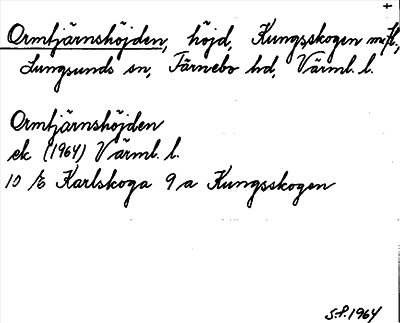 +
Ormtjärnshöjden, höjd, Kungsskogen m.fl.,
Lungsunds sn, Färnebo hd, Värml. l.
Ormtjärnshöjden
ek (1964) Värml. l.
10 E Karlskoga 9 a Kungsskogen
S.P. 1964